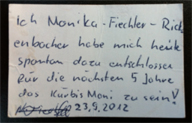 Ich Monika-Fiechler-Rick
enbacher habe mich heute
spontan dazu entschlossen
für die nächsten 5 Jahre
das Kürbis Moni zu sein!
23.9.2012